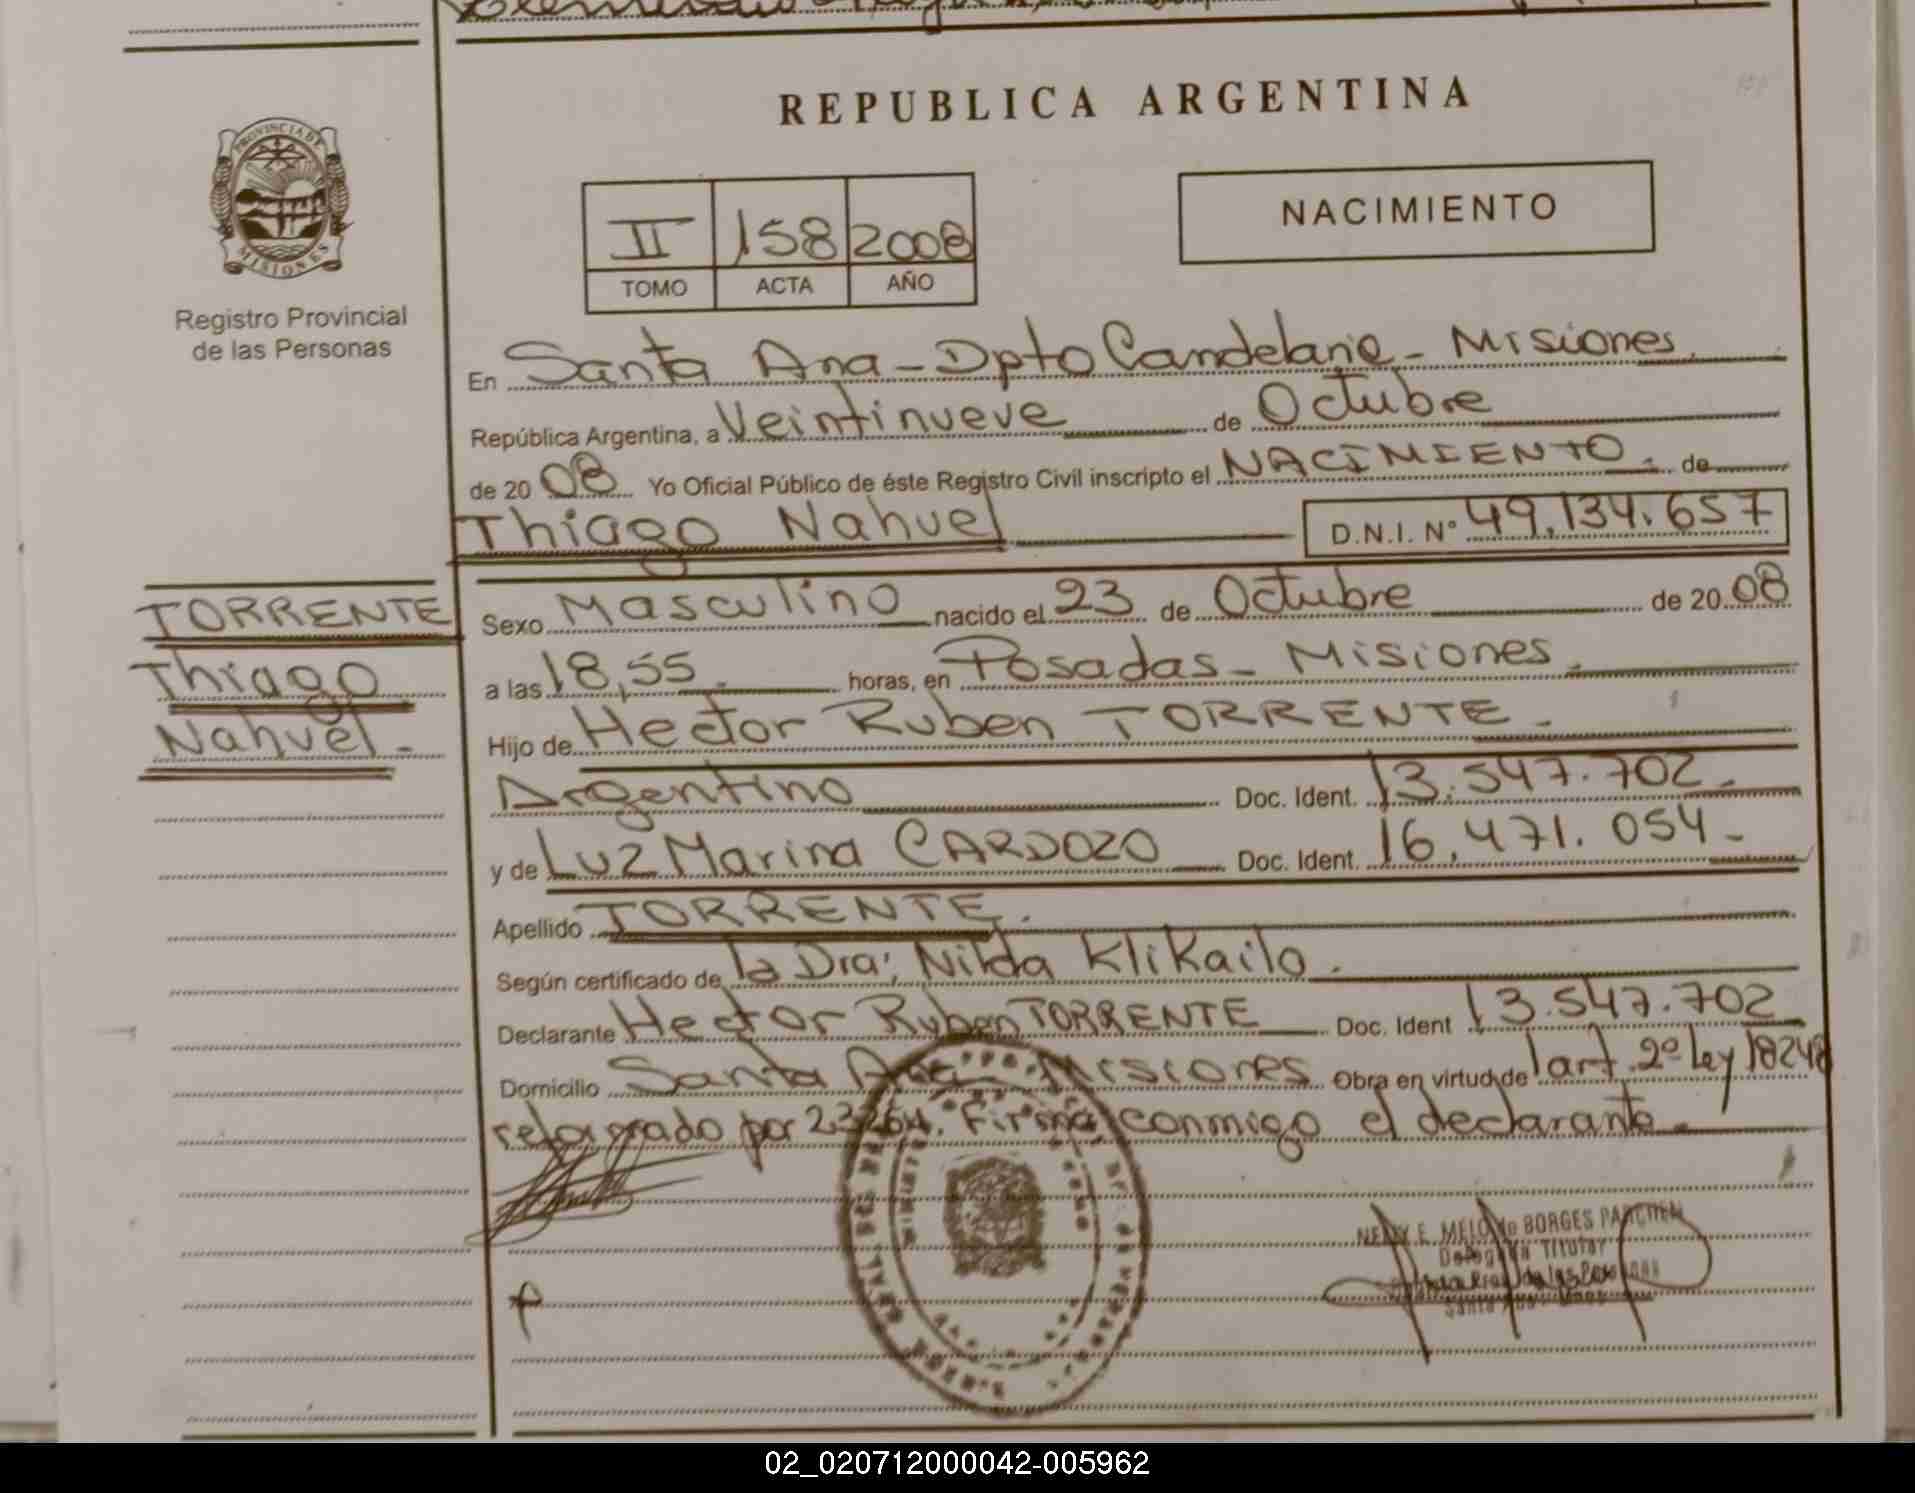 REPUBLICA ARGENTINA
PROVINCIA DE
MISIONES
Registro Provincial
de las Personas
II 158 2008
TOMO ACTA AÑO
NACIMIENTO
En Santa Ana - Dpto Candelaria - Misiones.
República Argentina, a Veintinueve de Octubre
de 20 08 Yo Oficial Público de éste Registro Civil inscripto el NACIMIENTO. de
Thiago Nahuel D.N.I. N° 49.134.657
TORRENTE
Thiago
Nahuel.-
Sexo Masculino nacido el 23 de Octubre de 20 08
a las 18,55 horas, en Posadas - Misiones.
Hijo de Hector Ruben TORRENTE.
Argentino Doc. Ident. 13.547.702.-
y de Luz Marina CARDOZO Doc. Ident. 16.471.054-
Apellido TORRENTE.
Según certificado de la Dra; Nilda Klikailo.
Declarante Hector Ruben TORRENTE Doc. Ident 13.547.702
Domicilio Santa Ana - Misiones Obra en virtud de art. 2º Ley 18248
reformado por 23264. Firma conmigo el declarante.-
NELLY E. MELO de BORGES PARCHEN
Delegada Titular
de las Personas
Santa Ana - Mnes
02_020712000042-005962